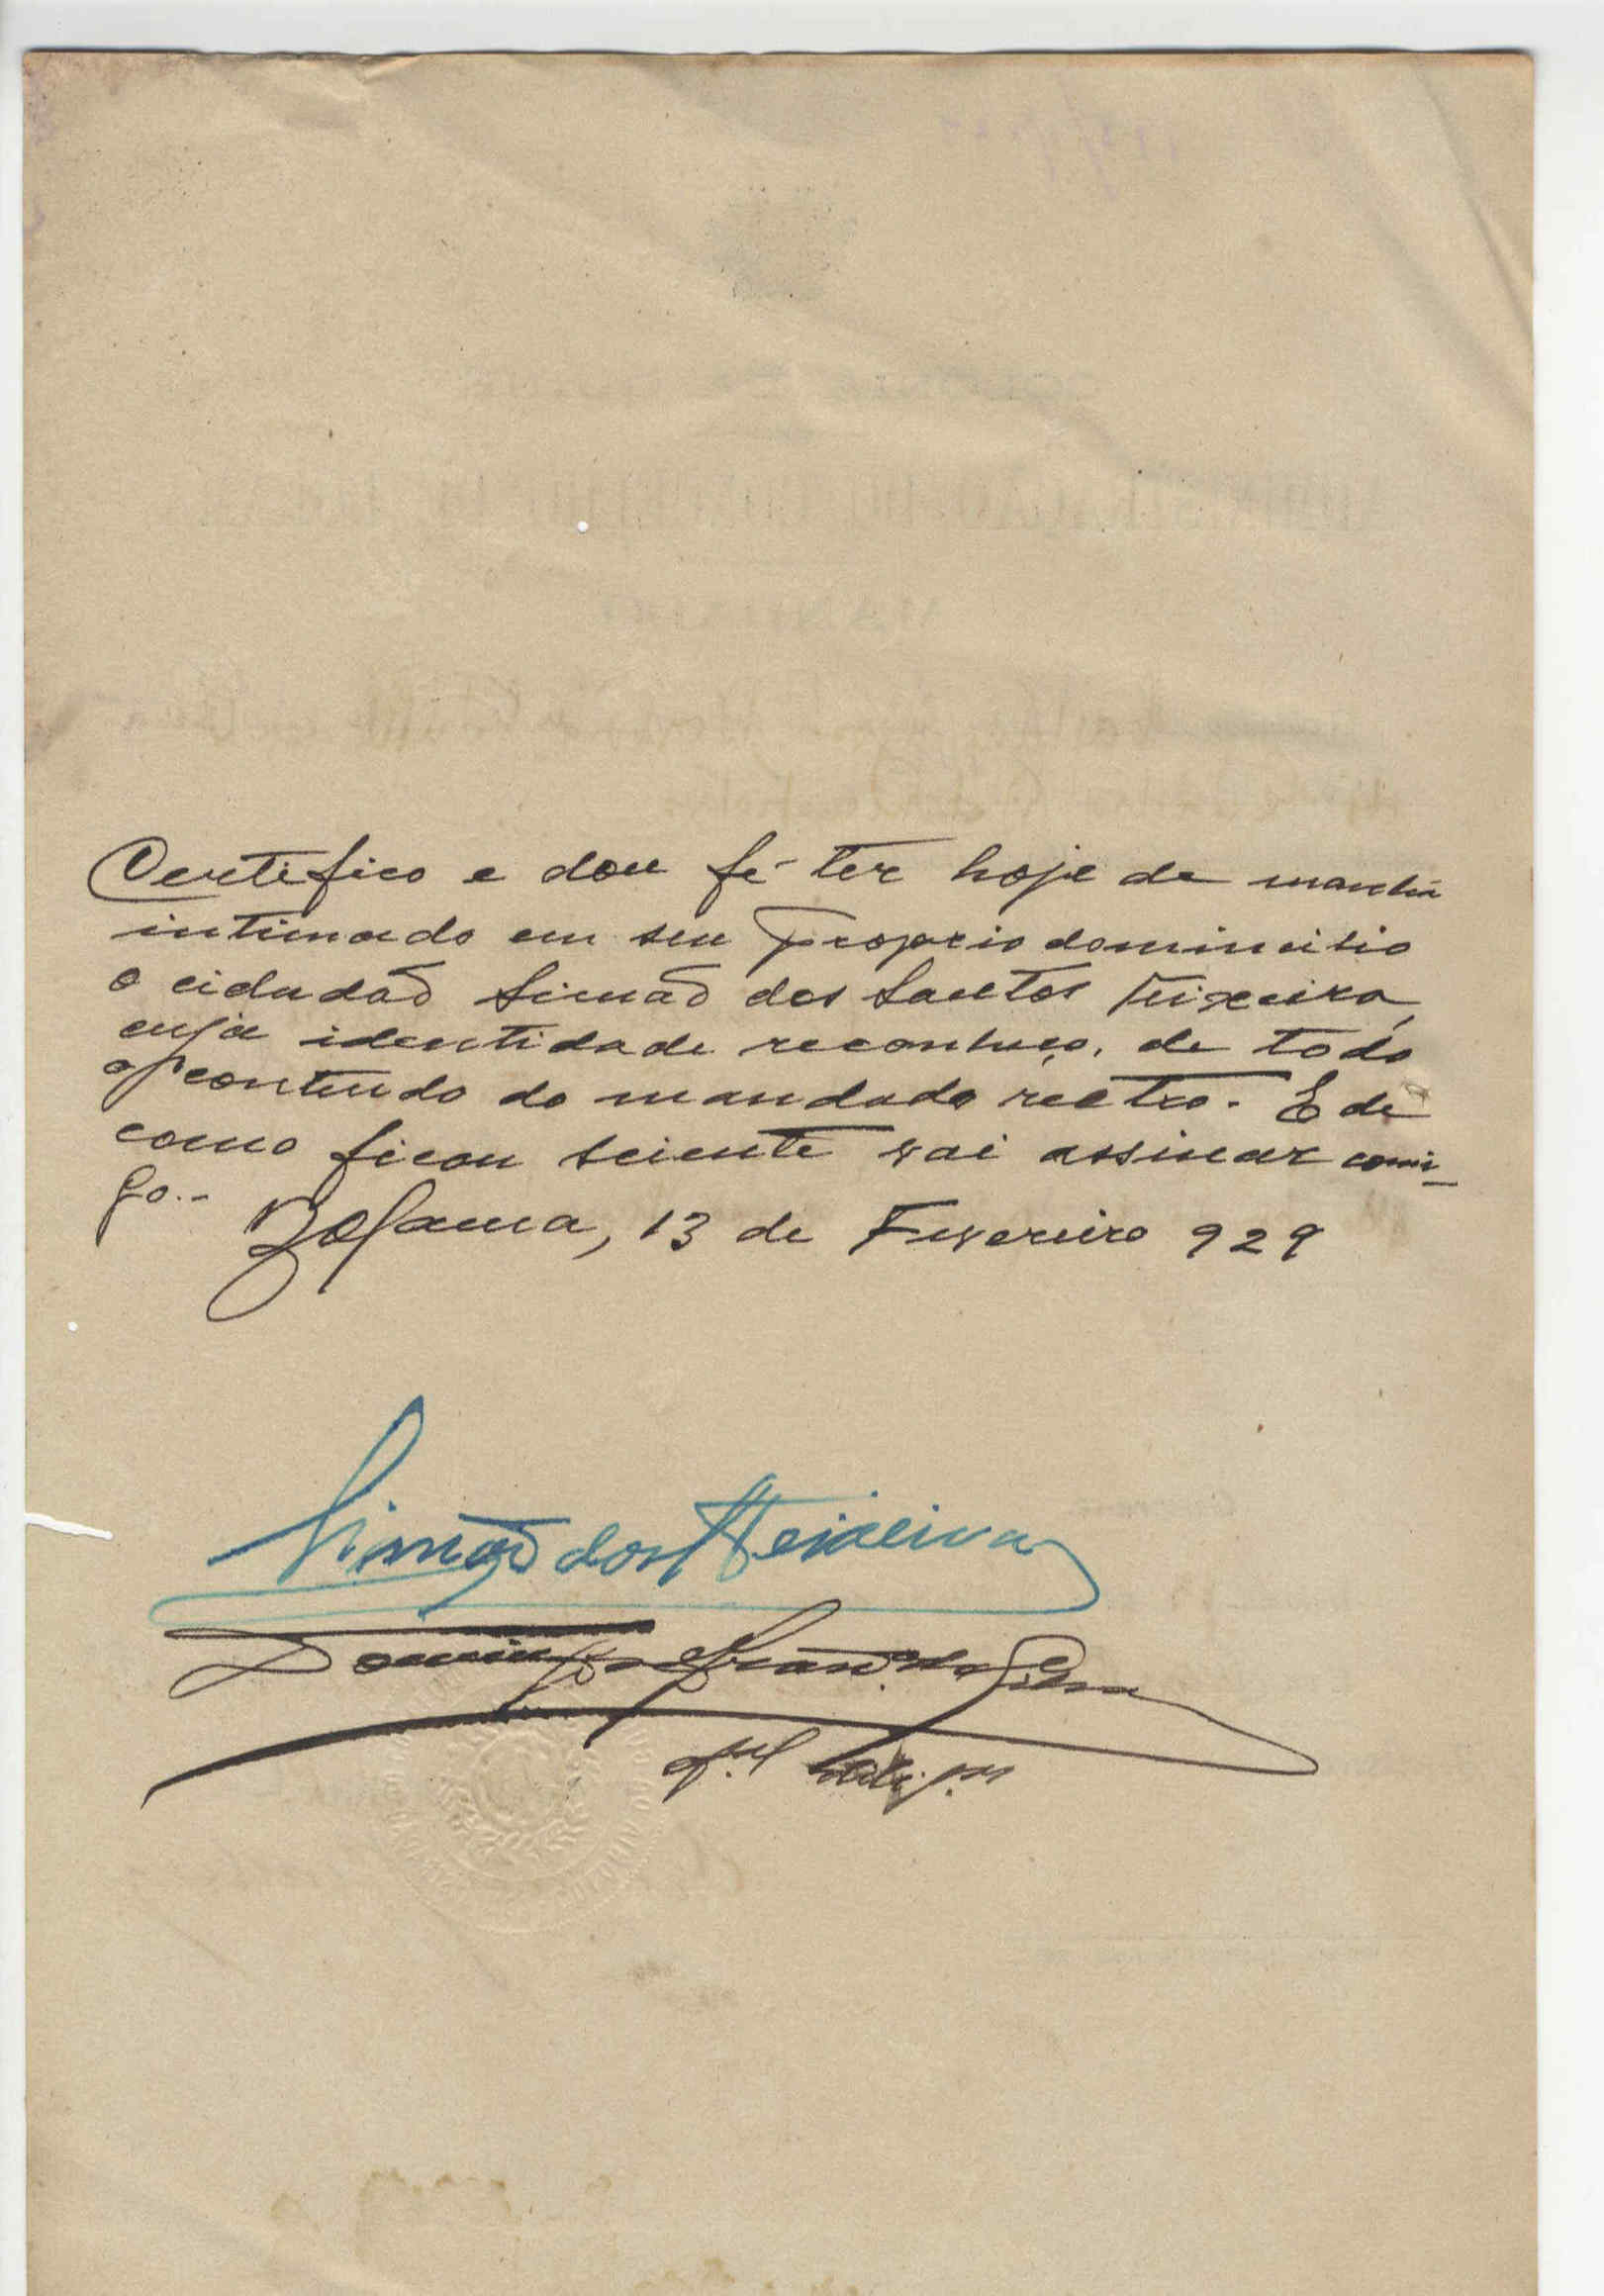 Certifico e dou fé ter hoje de manhã
intimado em seu proprio domincilio
o cidadão Simão dos Santos Teixeira,
cuja identidade reconheço, de todo
o conteudo do mandado rectro. E de
como ficou sciente vai assinar comi-
go.-
Bolama, 13 de Fevereiro 929
Simão dos S Teixeira
Domingos da Silva